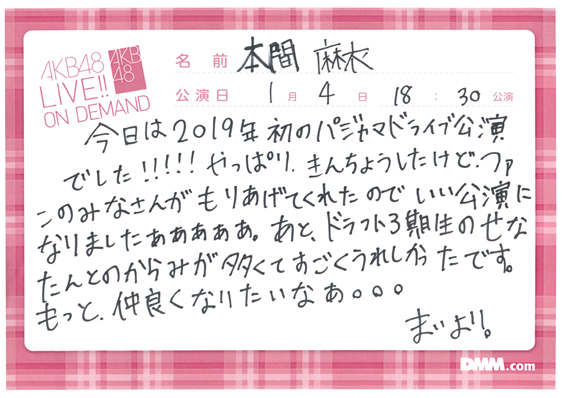 AKB48
LIVE!!
ON DEMAND
AKB
48
名前 本間 麻衣
公演日 1月 4日 18:30公演
今日は2019年初のパジャマドライブ公演
でした!!!!! やっぱり、きんちょうしたけど、ファ
ンのみなさんがもりあげてくれたのでいい公演に
なりましたぁぁぁぁぁ。あと、ドラフト3期生のせな
たんとのからみが多くてすごくうれしかったです。
もっと、仲良くなりたいなぁ。。。
まいより。
DMM.com